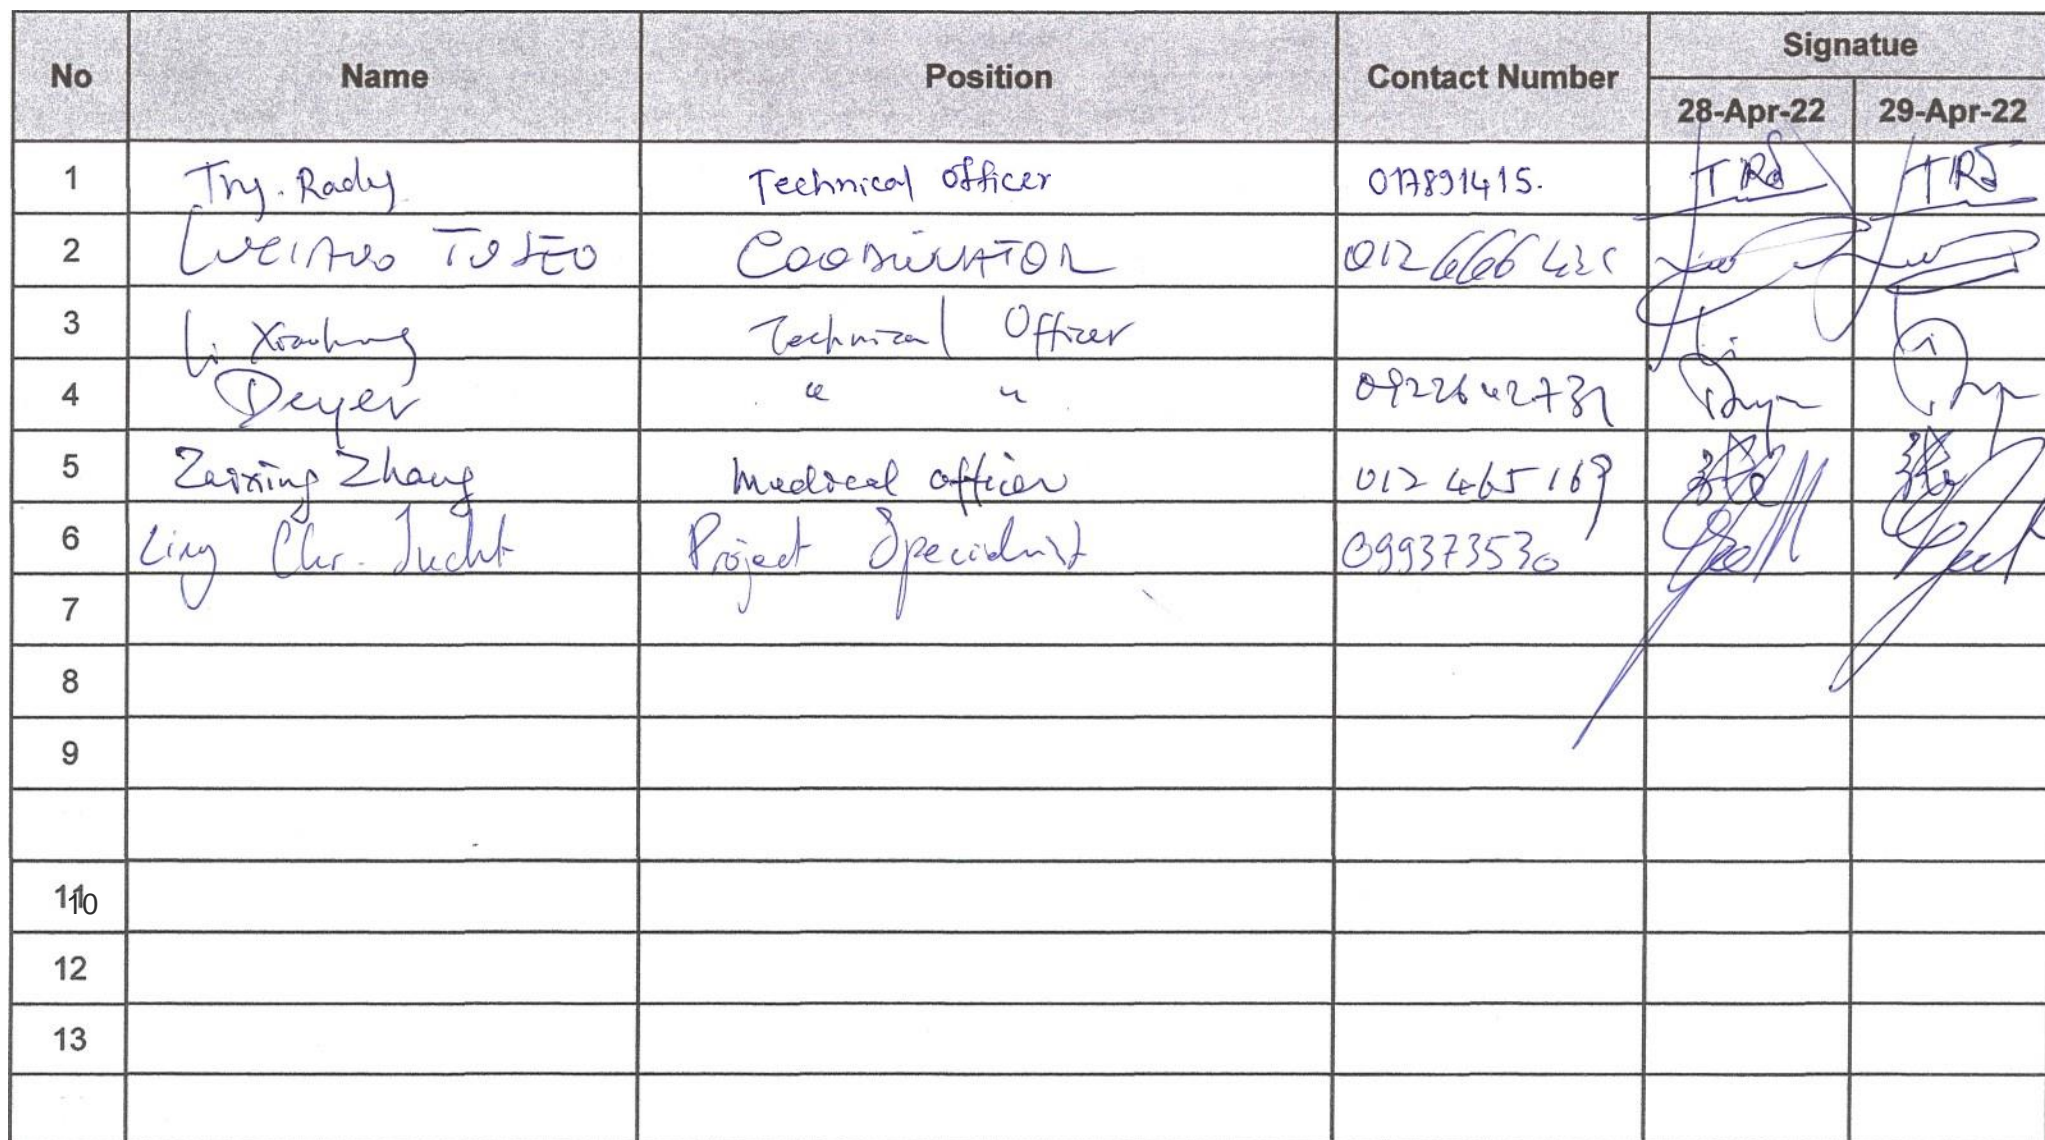 No Name Position Contact Number Signatue
28-Apr-22 29-Apr-22
1 Try. Rady Technical Officer 017891415. TRd TRd
2 LUCIANO TUSEO COODINATOR 012 666
3 Li Technical Officer Li Li
4 Deyer " "
5 Zaixing Zhang Medical officer 012 465 169 张 张
6 Ling Chr. Project Specialist 099373530
7
8
9
11 10
12
13